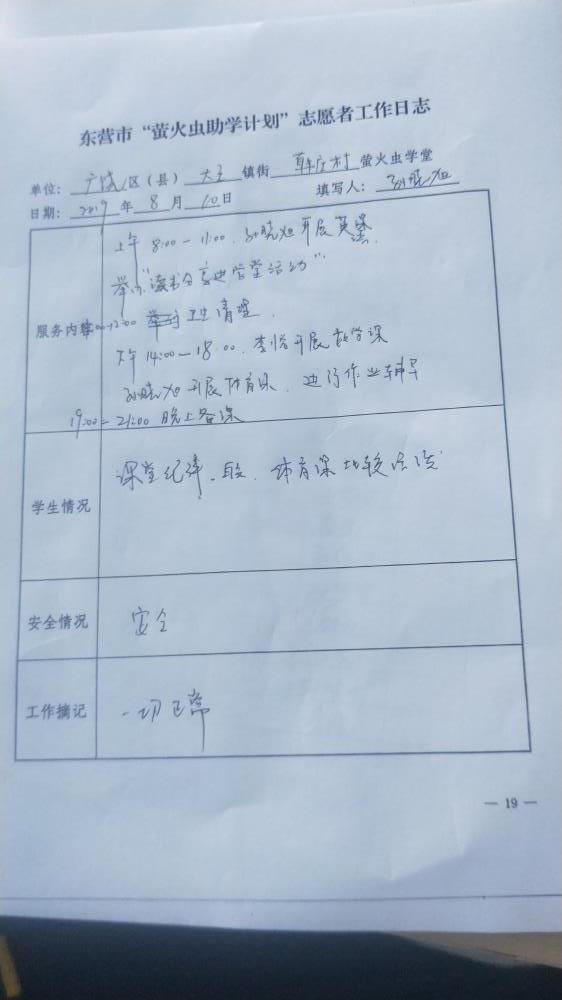 东营市“萤火虫助学计划”志愿者工作日志
单位：广饶区（县）大王镇街 村萤火虫学堂
日期：2019年8月10日 填写人：孙晓旭
服务内容
上午 8:00－11:00．孙晓旭开展英语课．
举办“读书分享进学堂活动”．
－12:00 卫生清理．
下午 14:00－18:00．李悦开展数学课
孙晓旭开展体育课．进行作业辅导
19:00－21:00 晚上备课
学生情况
课堂纪律一般．体育课比较活泼
安全情况
安全
工作摘记
一切正常
— 19 —